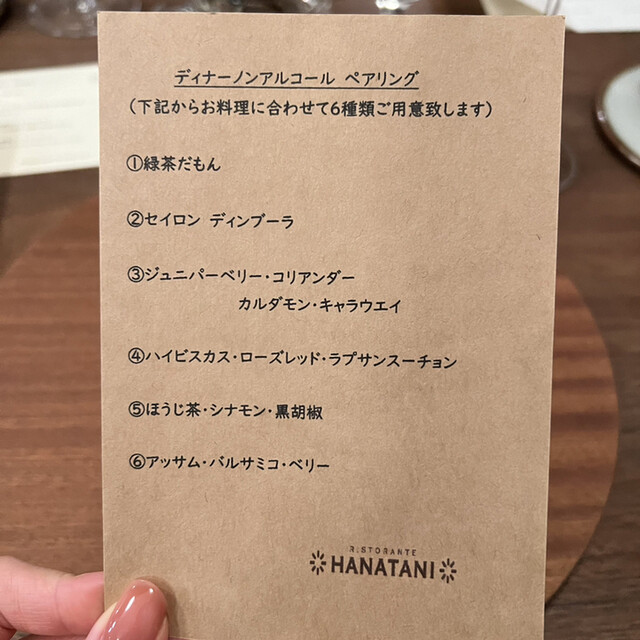 ディナーノンアルコール ペアリング
(下記からお料理に合わせて6種類ご用意致します)
①緑茶だもん
②セイロン ディンブーラ
③ジュニパーベリー・コリアンダー
カルダモン・キャラウエイ
④ハイビスカス・ローズレッド・ラプサンスーチョン
⑤ほうじ茶・シナモン・黒胡椒
⑥アッサム・バルサミコ・ベリー
RISTORANTE
HANATANI